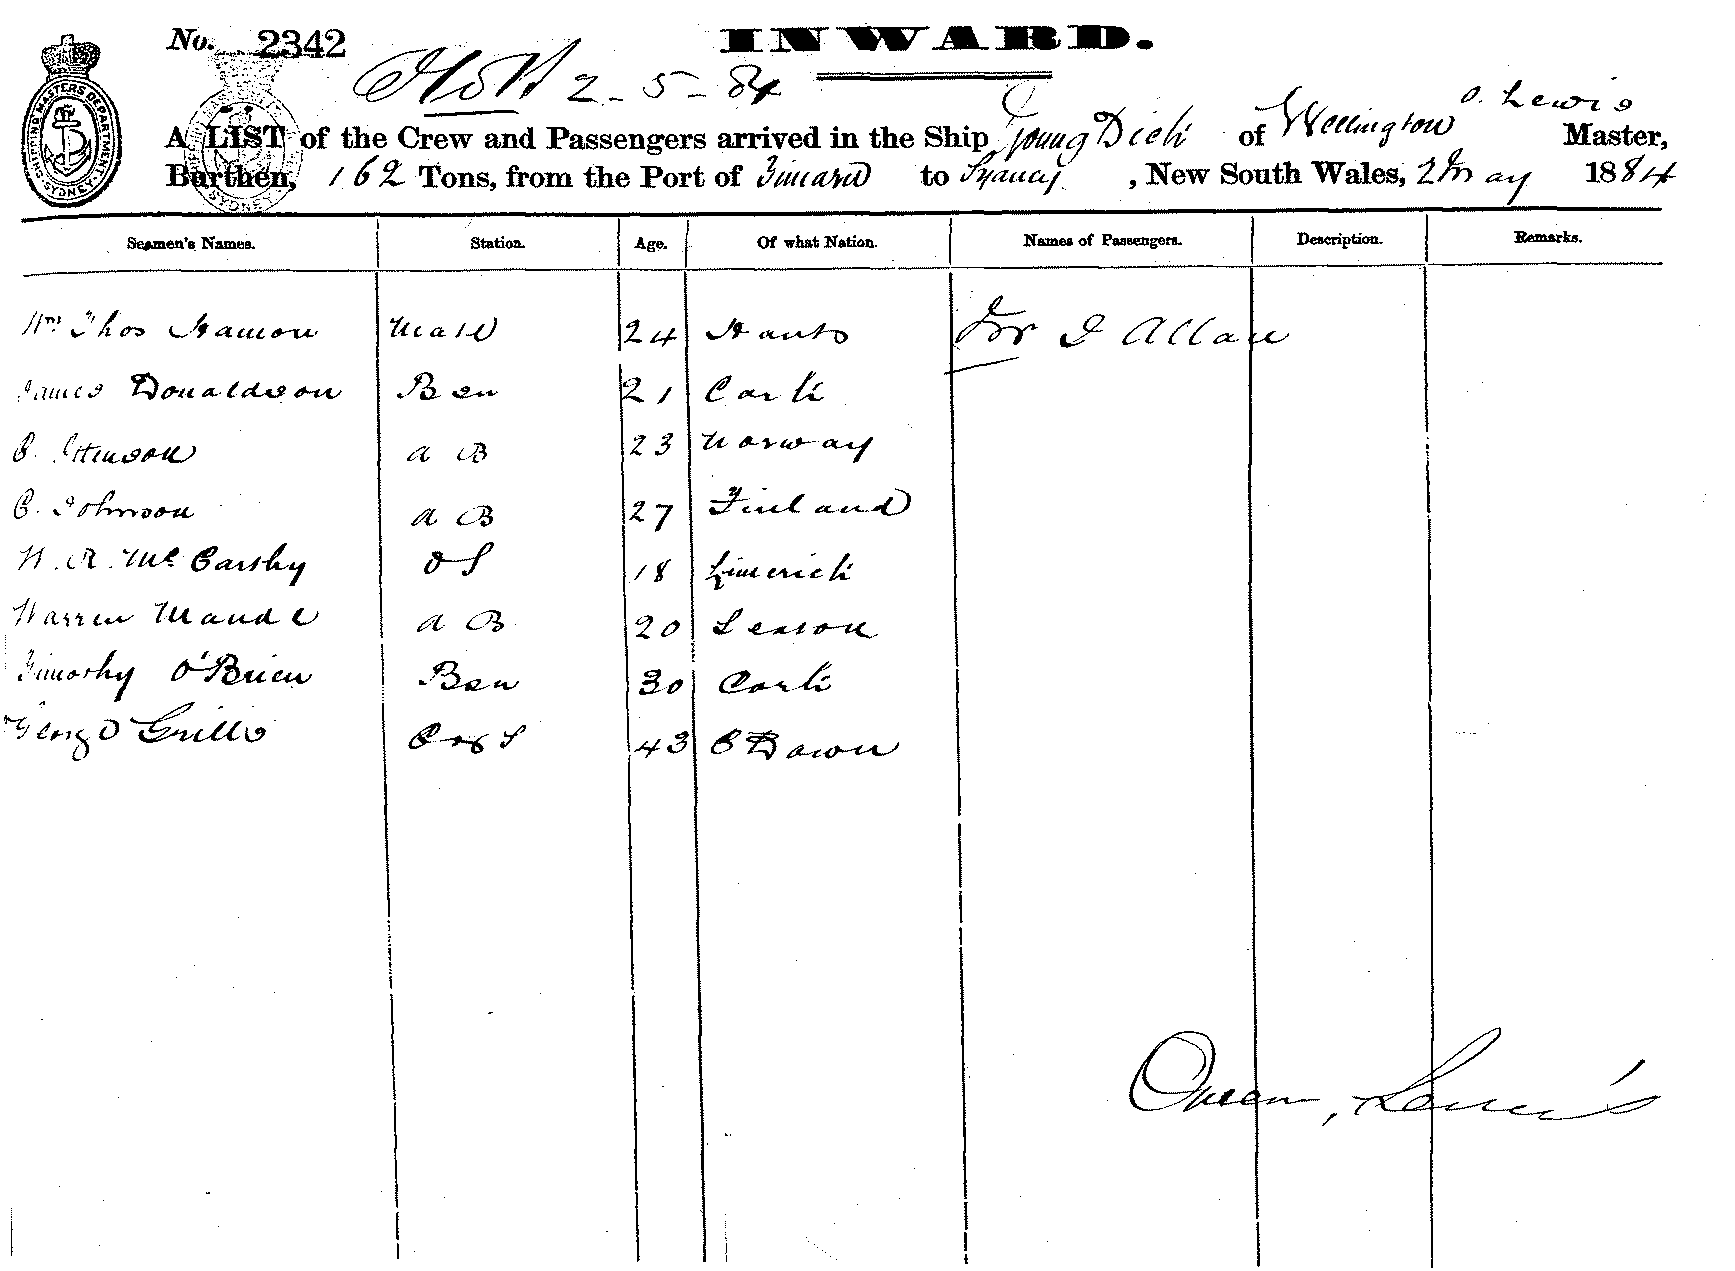 No. 2342 INWARD.
2-5-84
O. Lewis
A LIST of the Crew and Passengers arrived in the Ship Young Dick of Wellington Master,
Burthen, 162 Tons, from the Port of Timaru to Sydney, New South Wales, 2 May 1884
Seamen's Names. Station. Age. Of what Nation. Names of Passengers. Description. Remarks.
Wm Thos Hamon Mate 24 Hants For D Allan
James Donaldson Bsn 21 Cork
B. A B 23 Norway
C. Johnson A B 27 Finland
W. R. McCarthy O S 18 Limerick
Warren Maude A B 20
Timothy O'Brien Bsn 30 Cork
George Grills 43
Owen Lewis
SHIPPING MASTERS DEPARTMENT SYDNEY